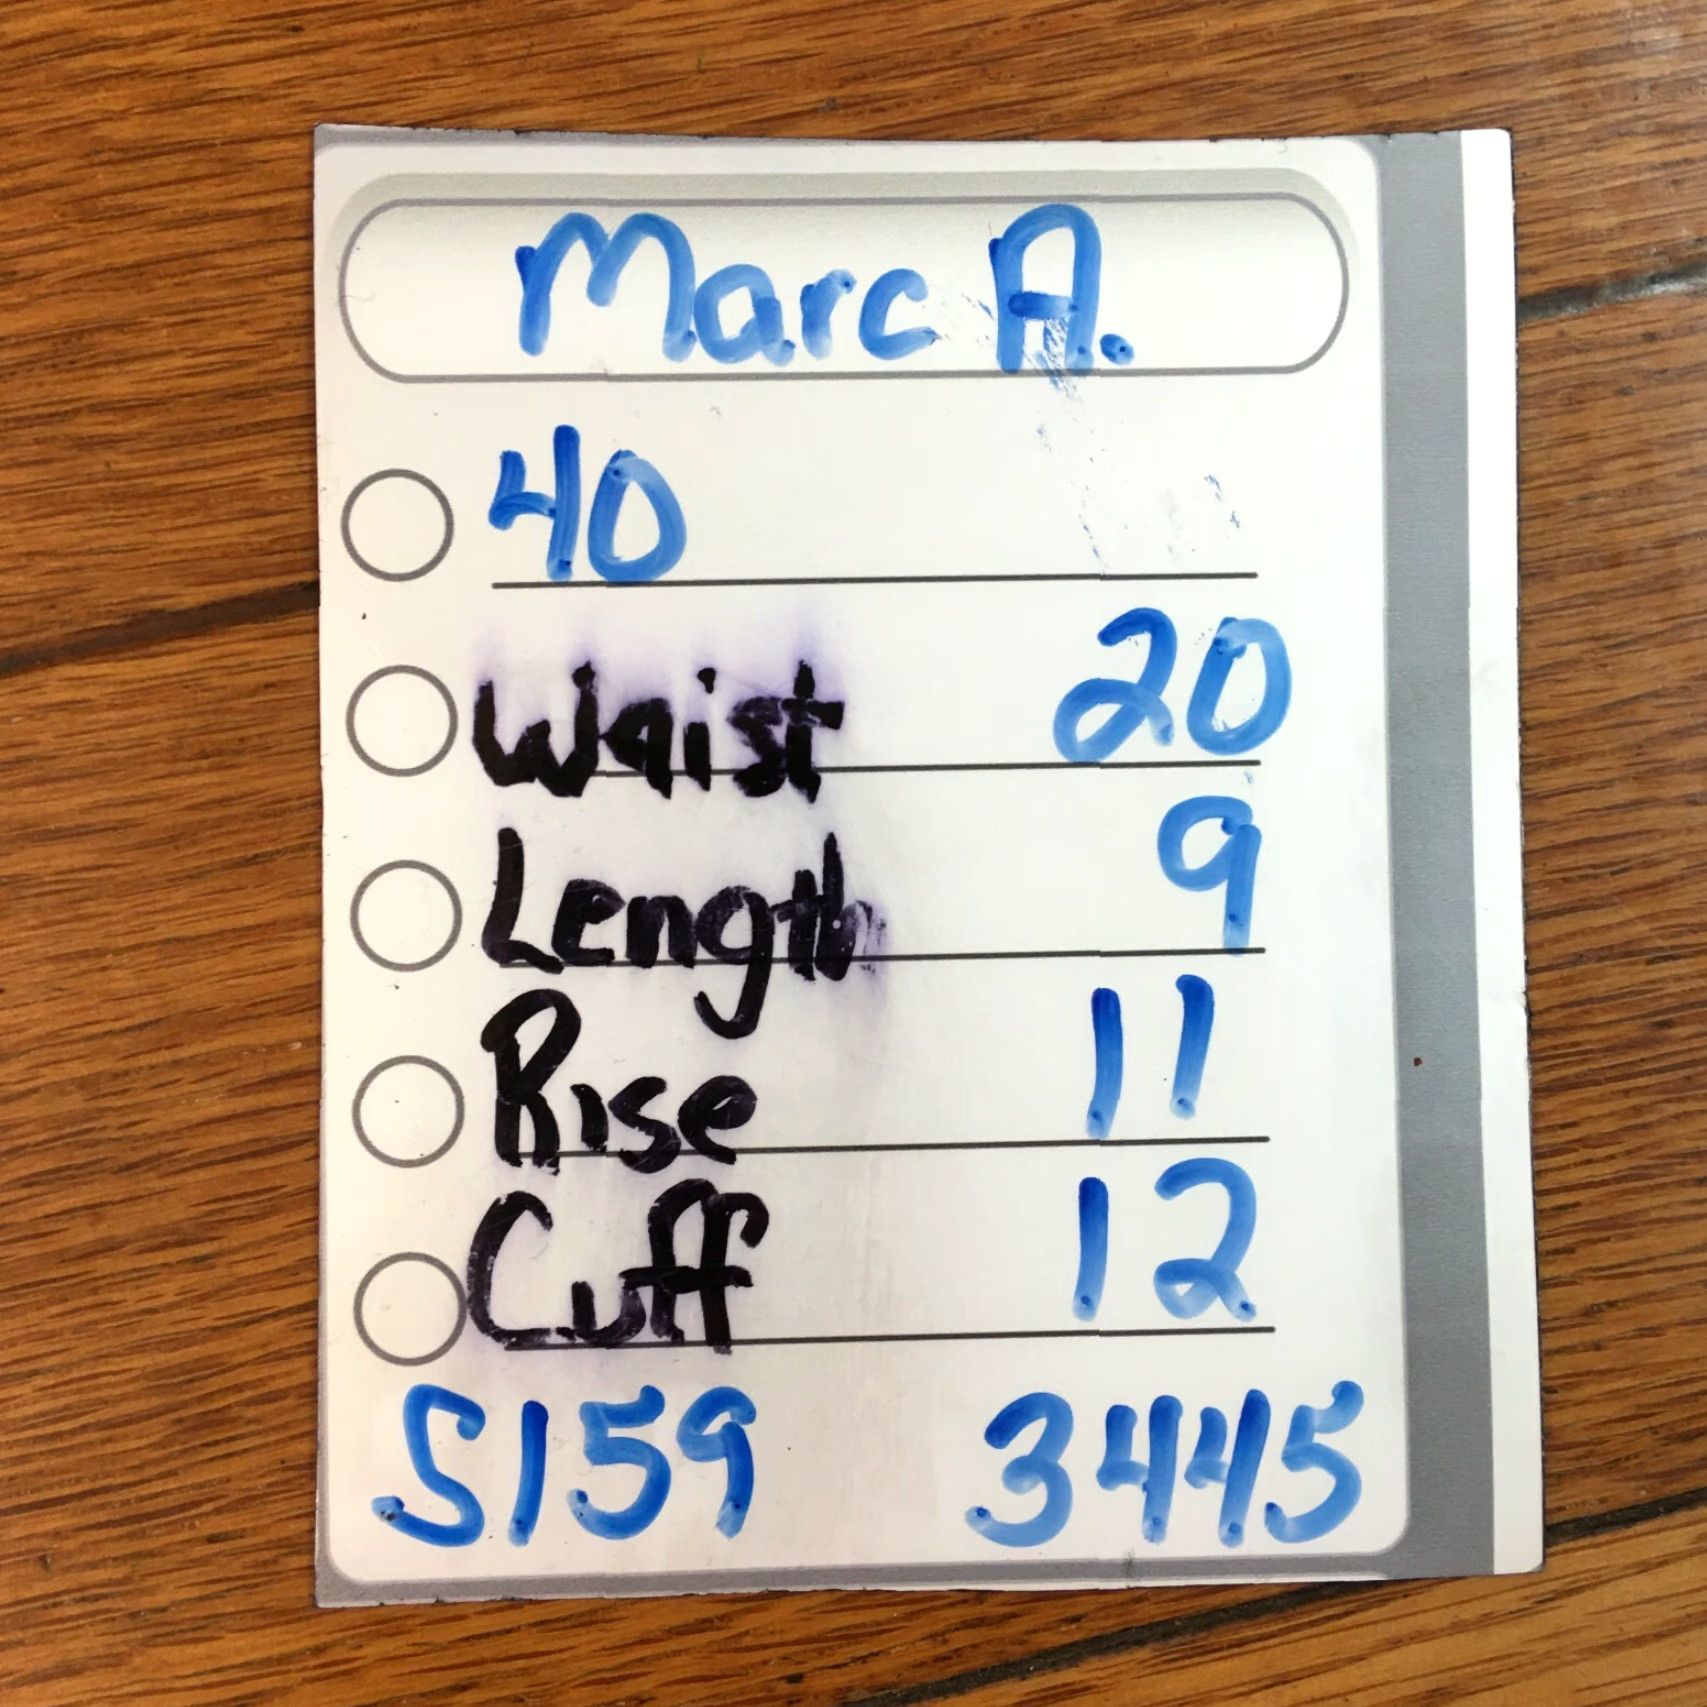 Marc A.
40
Waist 20
Length 9
Rise 11
Cuff 12
S159 3445